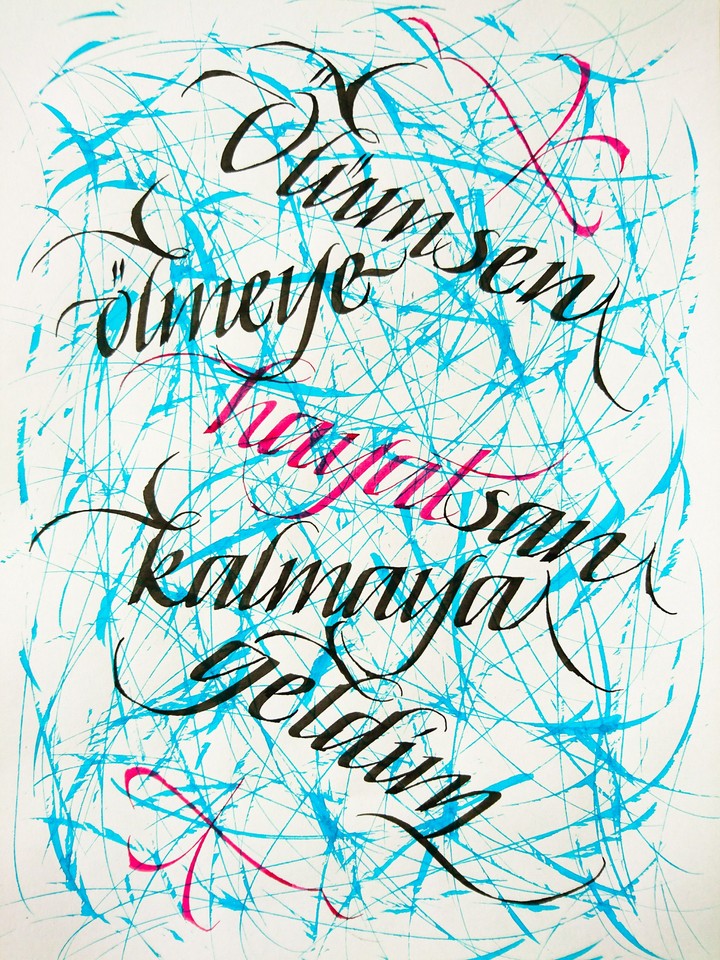 Ölümsen
ölmeye
hayatsan
kalmaya
geldim